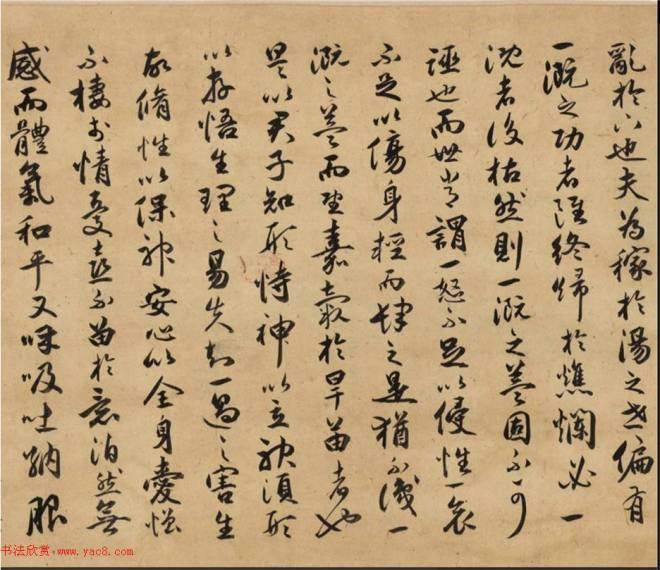 亂於下也夫為稼於湯之世偏有
一溉之功者雖終歸於燋爛必一
溉者後枯然則一溉之益固不可
誣也而世常謂一怒不足以侵性一哀
不足以傷身輕而肆之是猶不識一
溉之益而望嘉穀於旱苗者也
是以君子知形恃神以立神須形
以存悟生理之易失知一過之害生
故脩性以保神安心以全身愛憎
不棲於情憂喜不留於意泊然無
感而體氣和平又呼吸吐納服
书法欣赏·www.yac8.com